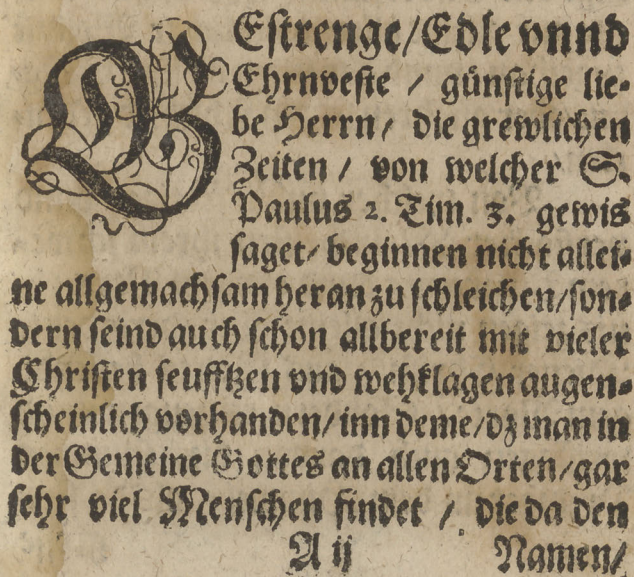 GEstrenge/Edle vnnd
Ehrnveste / günstige lie-
be Herrn/ die grewlichen
Zeiten / von welcher S.
Paulus 2. Tim. 3. gewis
saget/ beginnen nicht allei-
ne allgemachsam heran zu schleichen/son-
dern seind auch schon allbereit mit vieler
Christen seufftzen vnd wehklagen augen-
scheinlich vorhanden/inn deme/dz man in
der Gemeine Gottes an allen Orten/gar
sehr viel Menschen findet / die da den
A ij Namen/